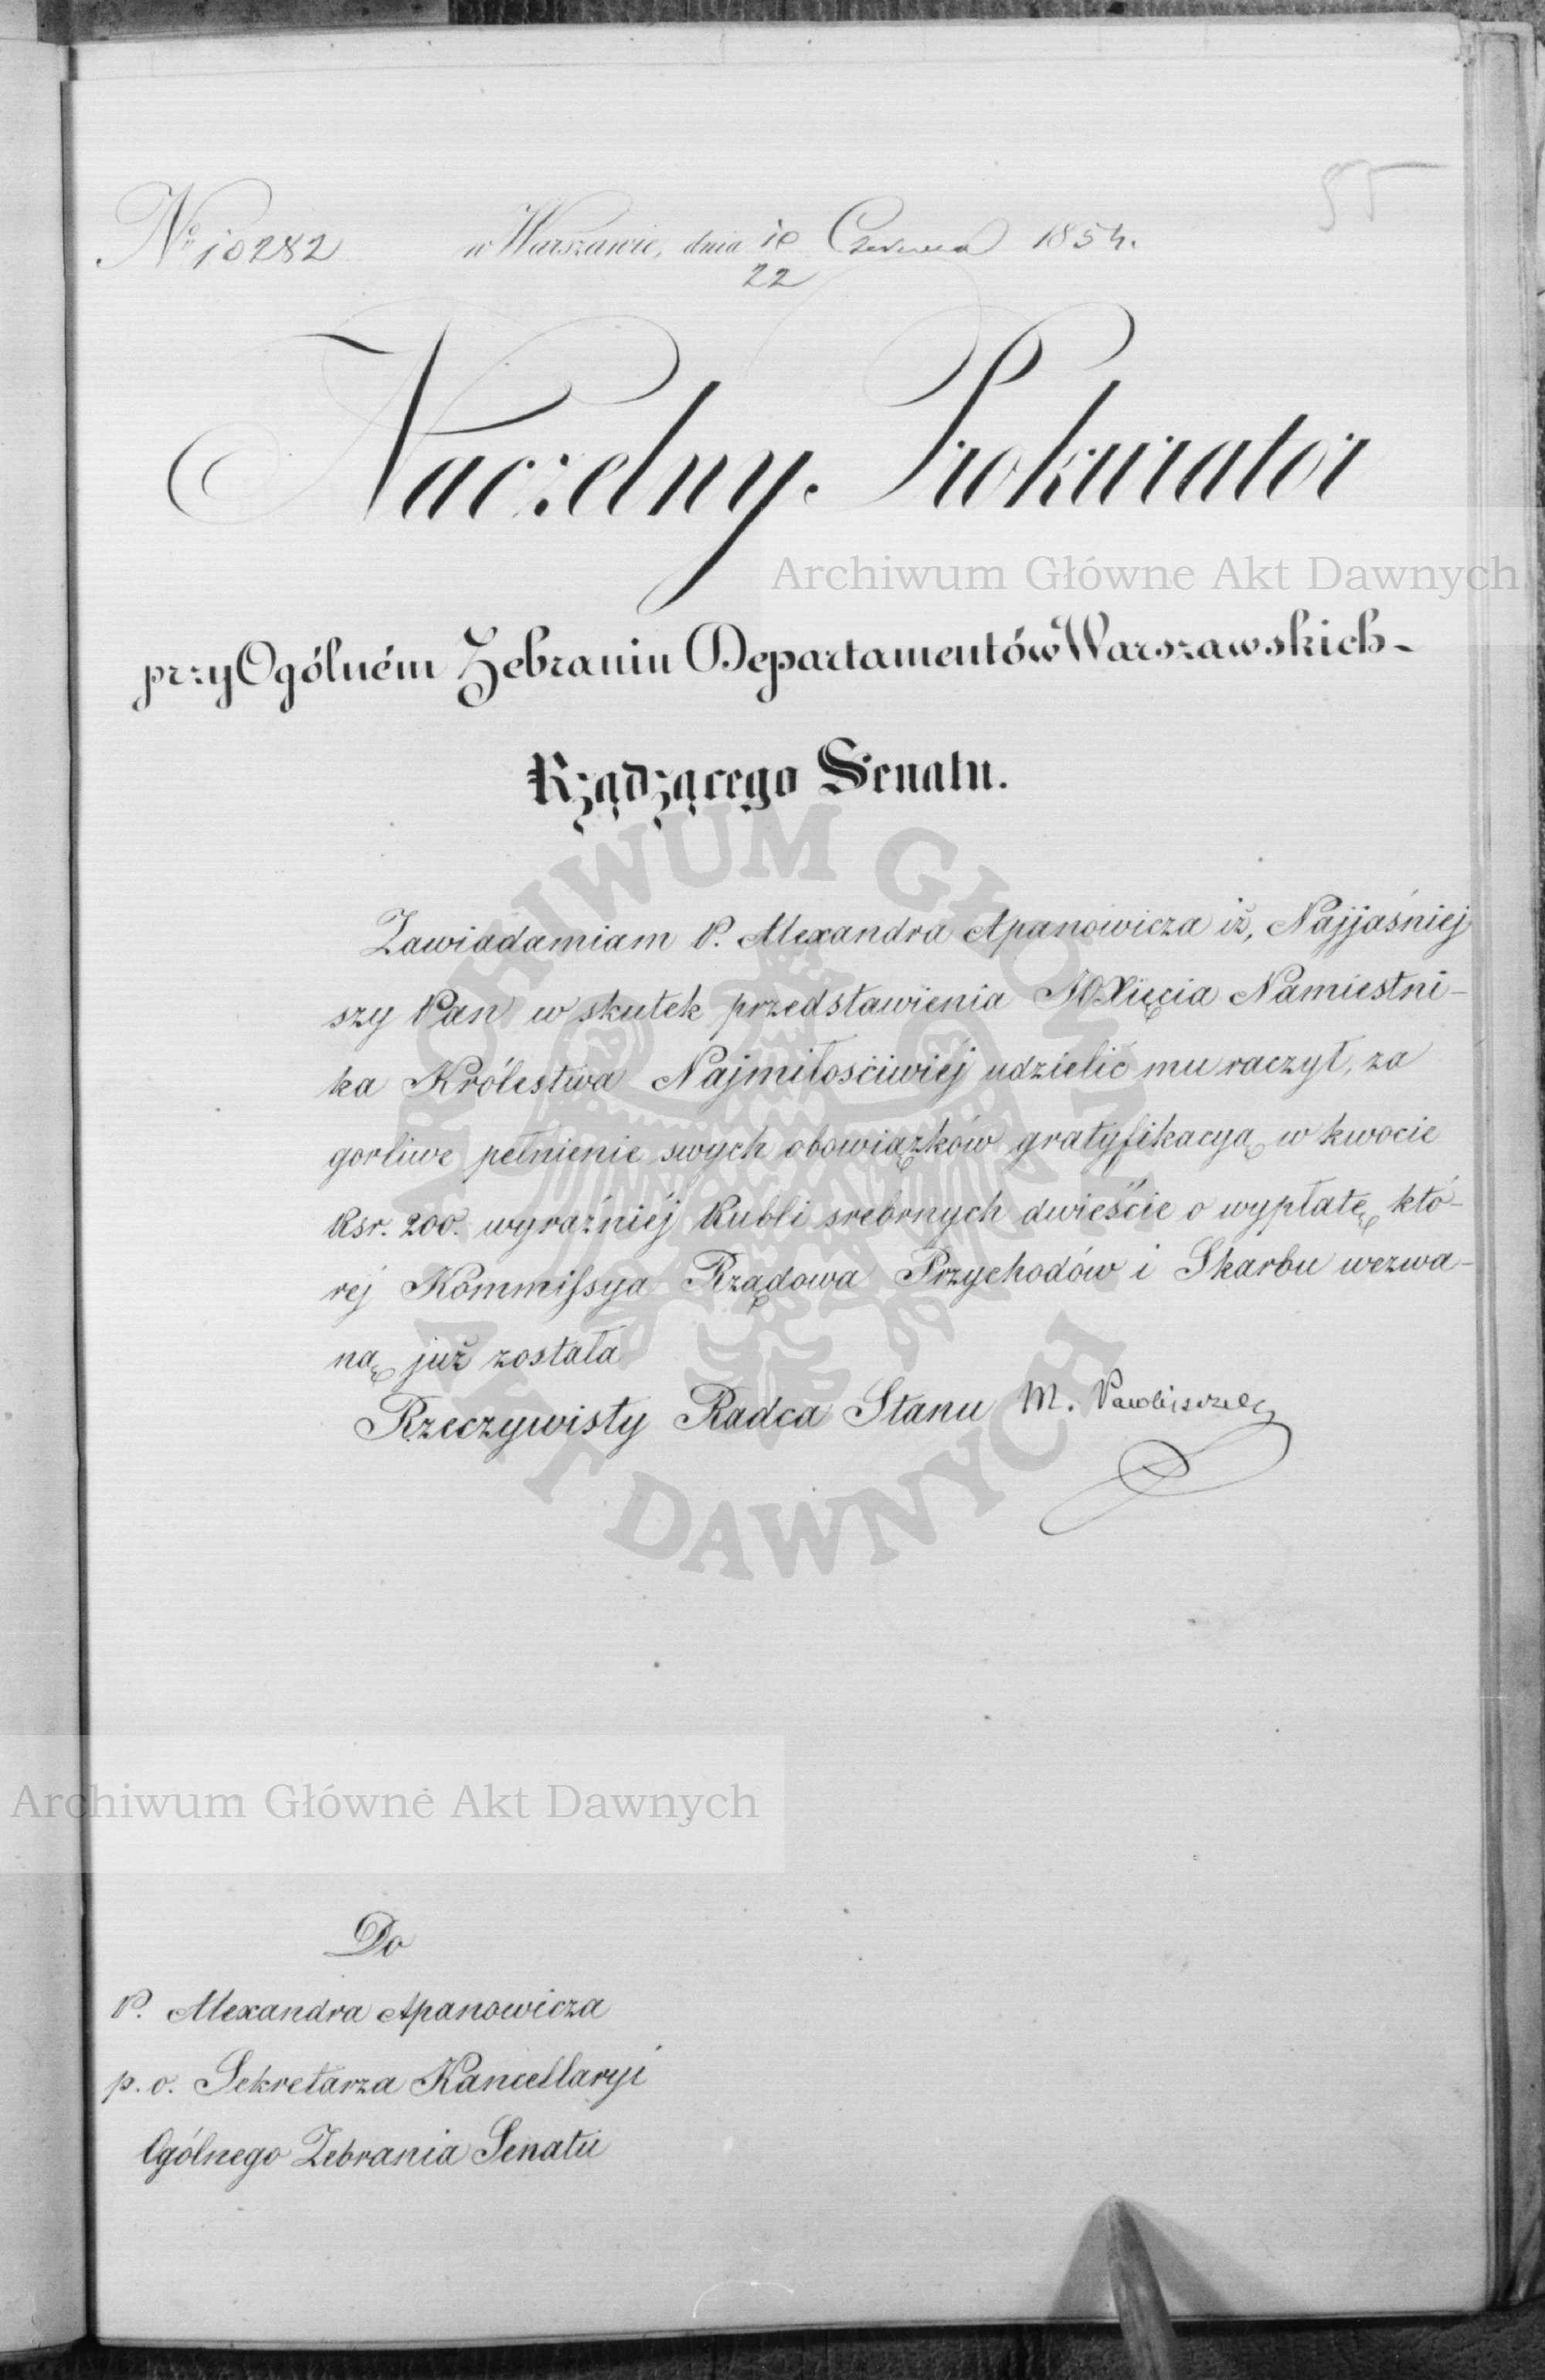 55
No 10282 w Warszawie, dnia 10/22 Czerwca 1854.
Naczelny Prokurator
przy Ogólném Zebraniu Departamentów Warszawskich
Rządzącego Senatu.
Zawiadamiam P. Alexandra Apanowicza iż, Najjaśniej
szy Pan w skutek przedstawienia JOXięcia Namiestni-
ka Królestwa Najmiłościwiéj udzielić mu raczył, za
gorliwe pełnienie swych obowiązków gratyfikacyą w kwocie
Rsr. 200. wyraźniéj Rubli srebrnych dwieście o wypłatę któ-
rej Kommissya Rządowa Przychodów i Skarbu wezwa-
ną już została
Rzeczywisty Radca Stanu M.
Do
P. Alexandra Apanowicza
p. o. Sekretarza Kancellaryi
Ogólnego Zebrania Senatu
Archiwum Główne Akt Dawnych
Archiwum Główne Akt Dawnych
ARCHIWUM GŁÓWNE AKT DAWNYCH